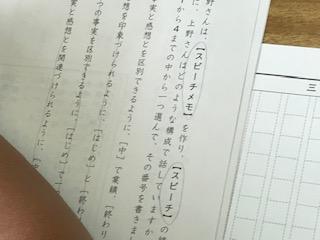 野さんは、【スピーチメモ】を作り、【スピーチ】の
に、上野さんはどのような構成で話していますか
から4までの中から一つ選んで、その番号を書きま
実と感想とを区別できるように、［中］で業績、［終わり
想を印象づけられるように、［はじめ］と［終わり
つの事実を区別できるように、［はじめ］で
実と感想とを関連づけられるように、
三